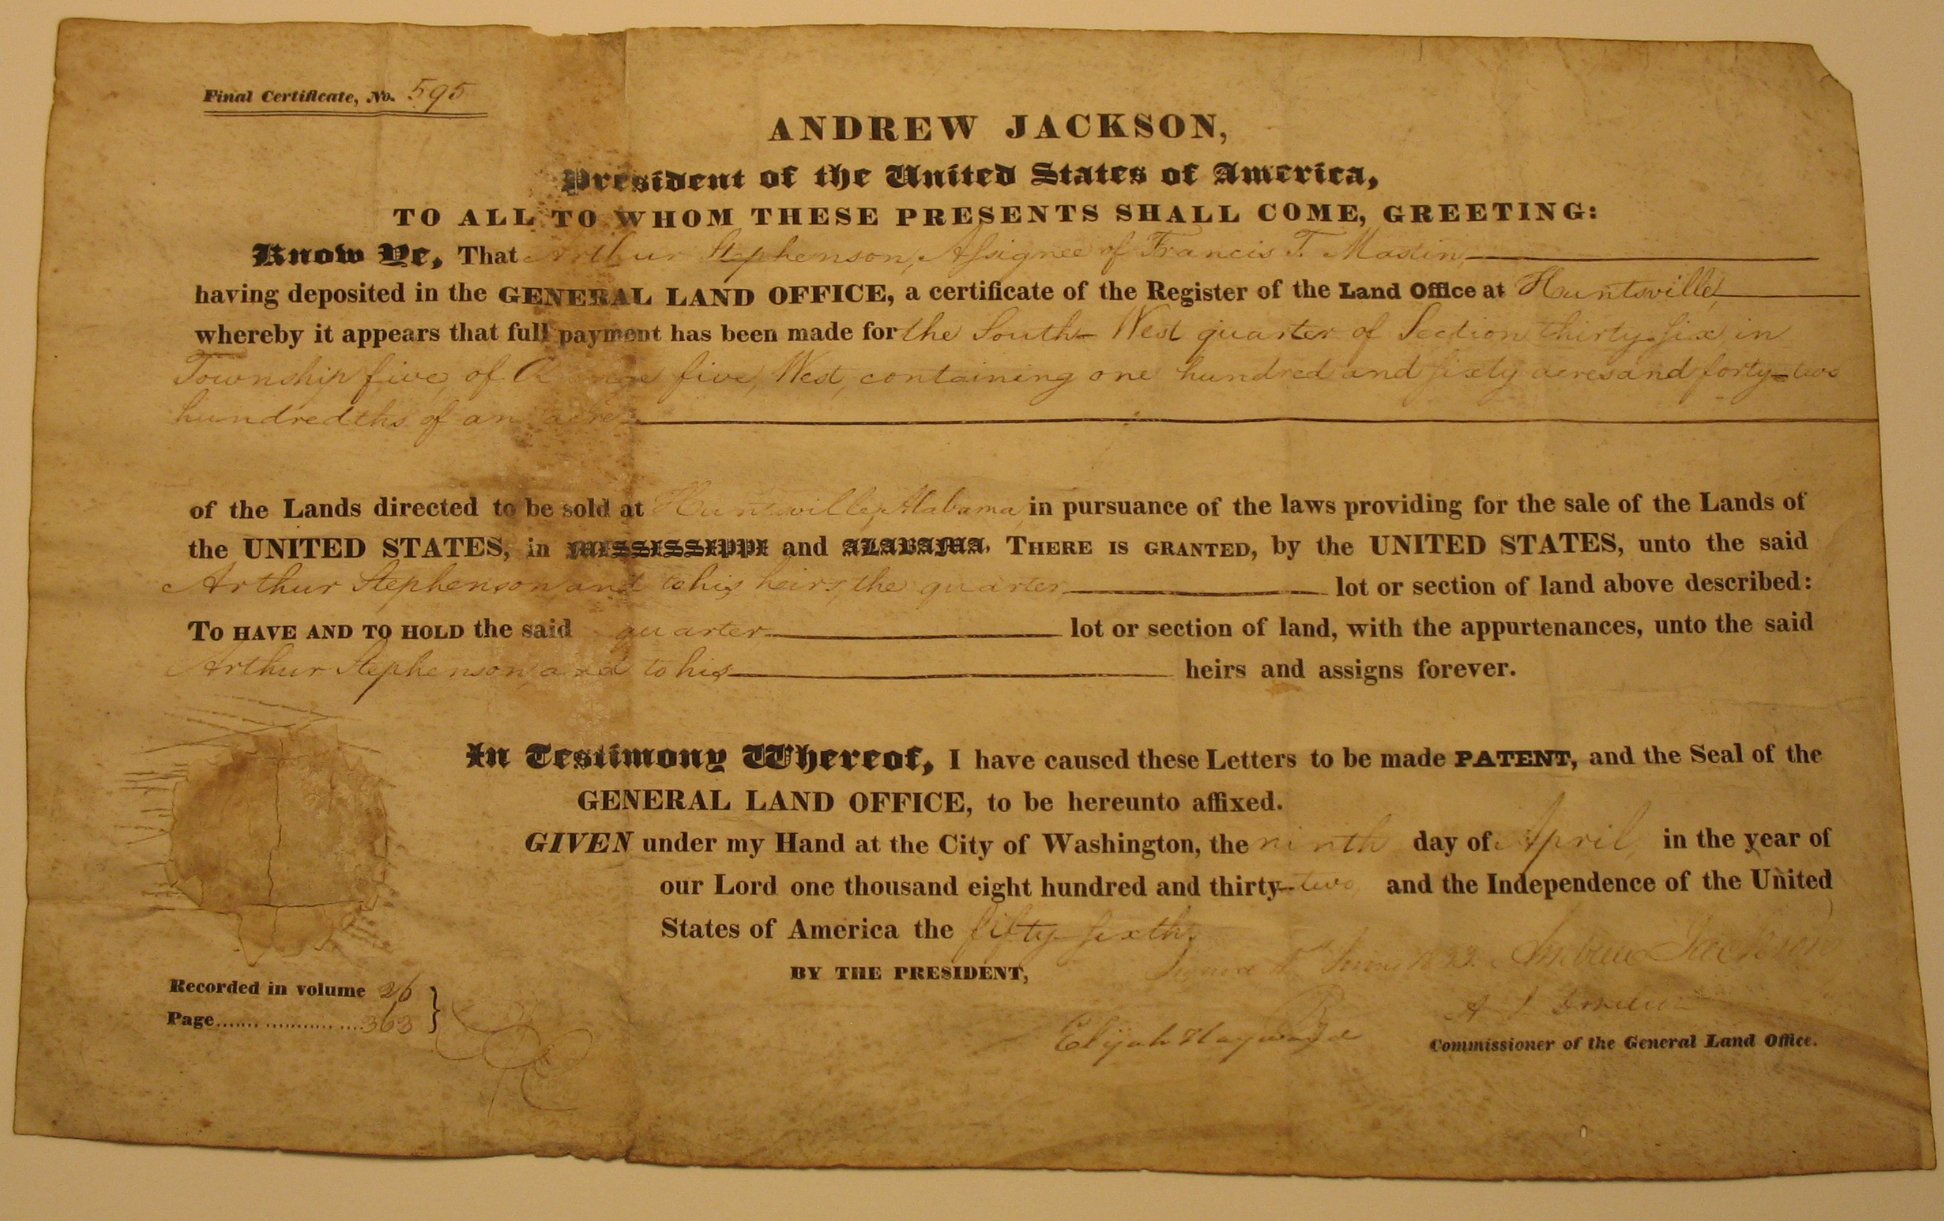 Final Certificate, No. 595
ANDREW JACKSON,
President of the United States of America,
TO ALL TO WHOM THESE PRESENTS SHALL COME, GREETING:
Know Ye, That Arthur Stephenson, Assignee of Francis T. Mastin,
having deposited in the GENERAL LAND OFFICE, a certificate of the Register of the Land Office at Huntsville,
whereby it appears that full payment has been made for the South-West quarter of Section thirty-six in
Township five, of Range five, West, containing one hundred and sixty acres and forty-two
hundredths of an acre
of the Lands directed to be sold at Huntsville, Alabama, in pursuance of the laws providing for the sale of the Lands of
the UNITED STATES, in MISSISSIPPI and ALABAMA. THERE IS GRANTED, by the UNITED STATES, unto the said
Arthur Stephenson and to his heirs, the quarter lot or section of land above described:
TO HAVE AND TO HOLD the said quarter lot or section of land, with the appurtenances, unto the said
Arthur Stephenson, and to his heirs and assigns forever.
In Testimony Whereof, I have caused these Letters to be made PATENT, and the Seal of the
GENERAL LAND OFFICE, to be hereunto affixed.
GIVEN under my Hand at the City of Washington, the ninth day of April, in the year of
our Lord one thousand eight hundred and thirty-two and the Independence of the United
States of America the fifty-sixth.
BY THE PRESIDENT, Andrew Jackson
Recorded in volume 26
Page 363
Elijah Hayward
Commissioner of the General Land Office.